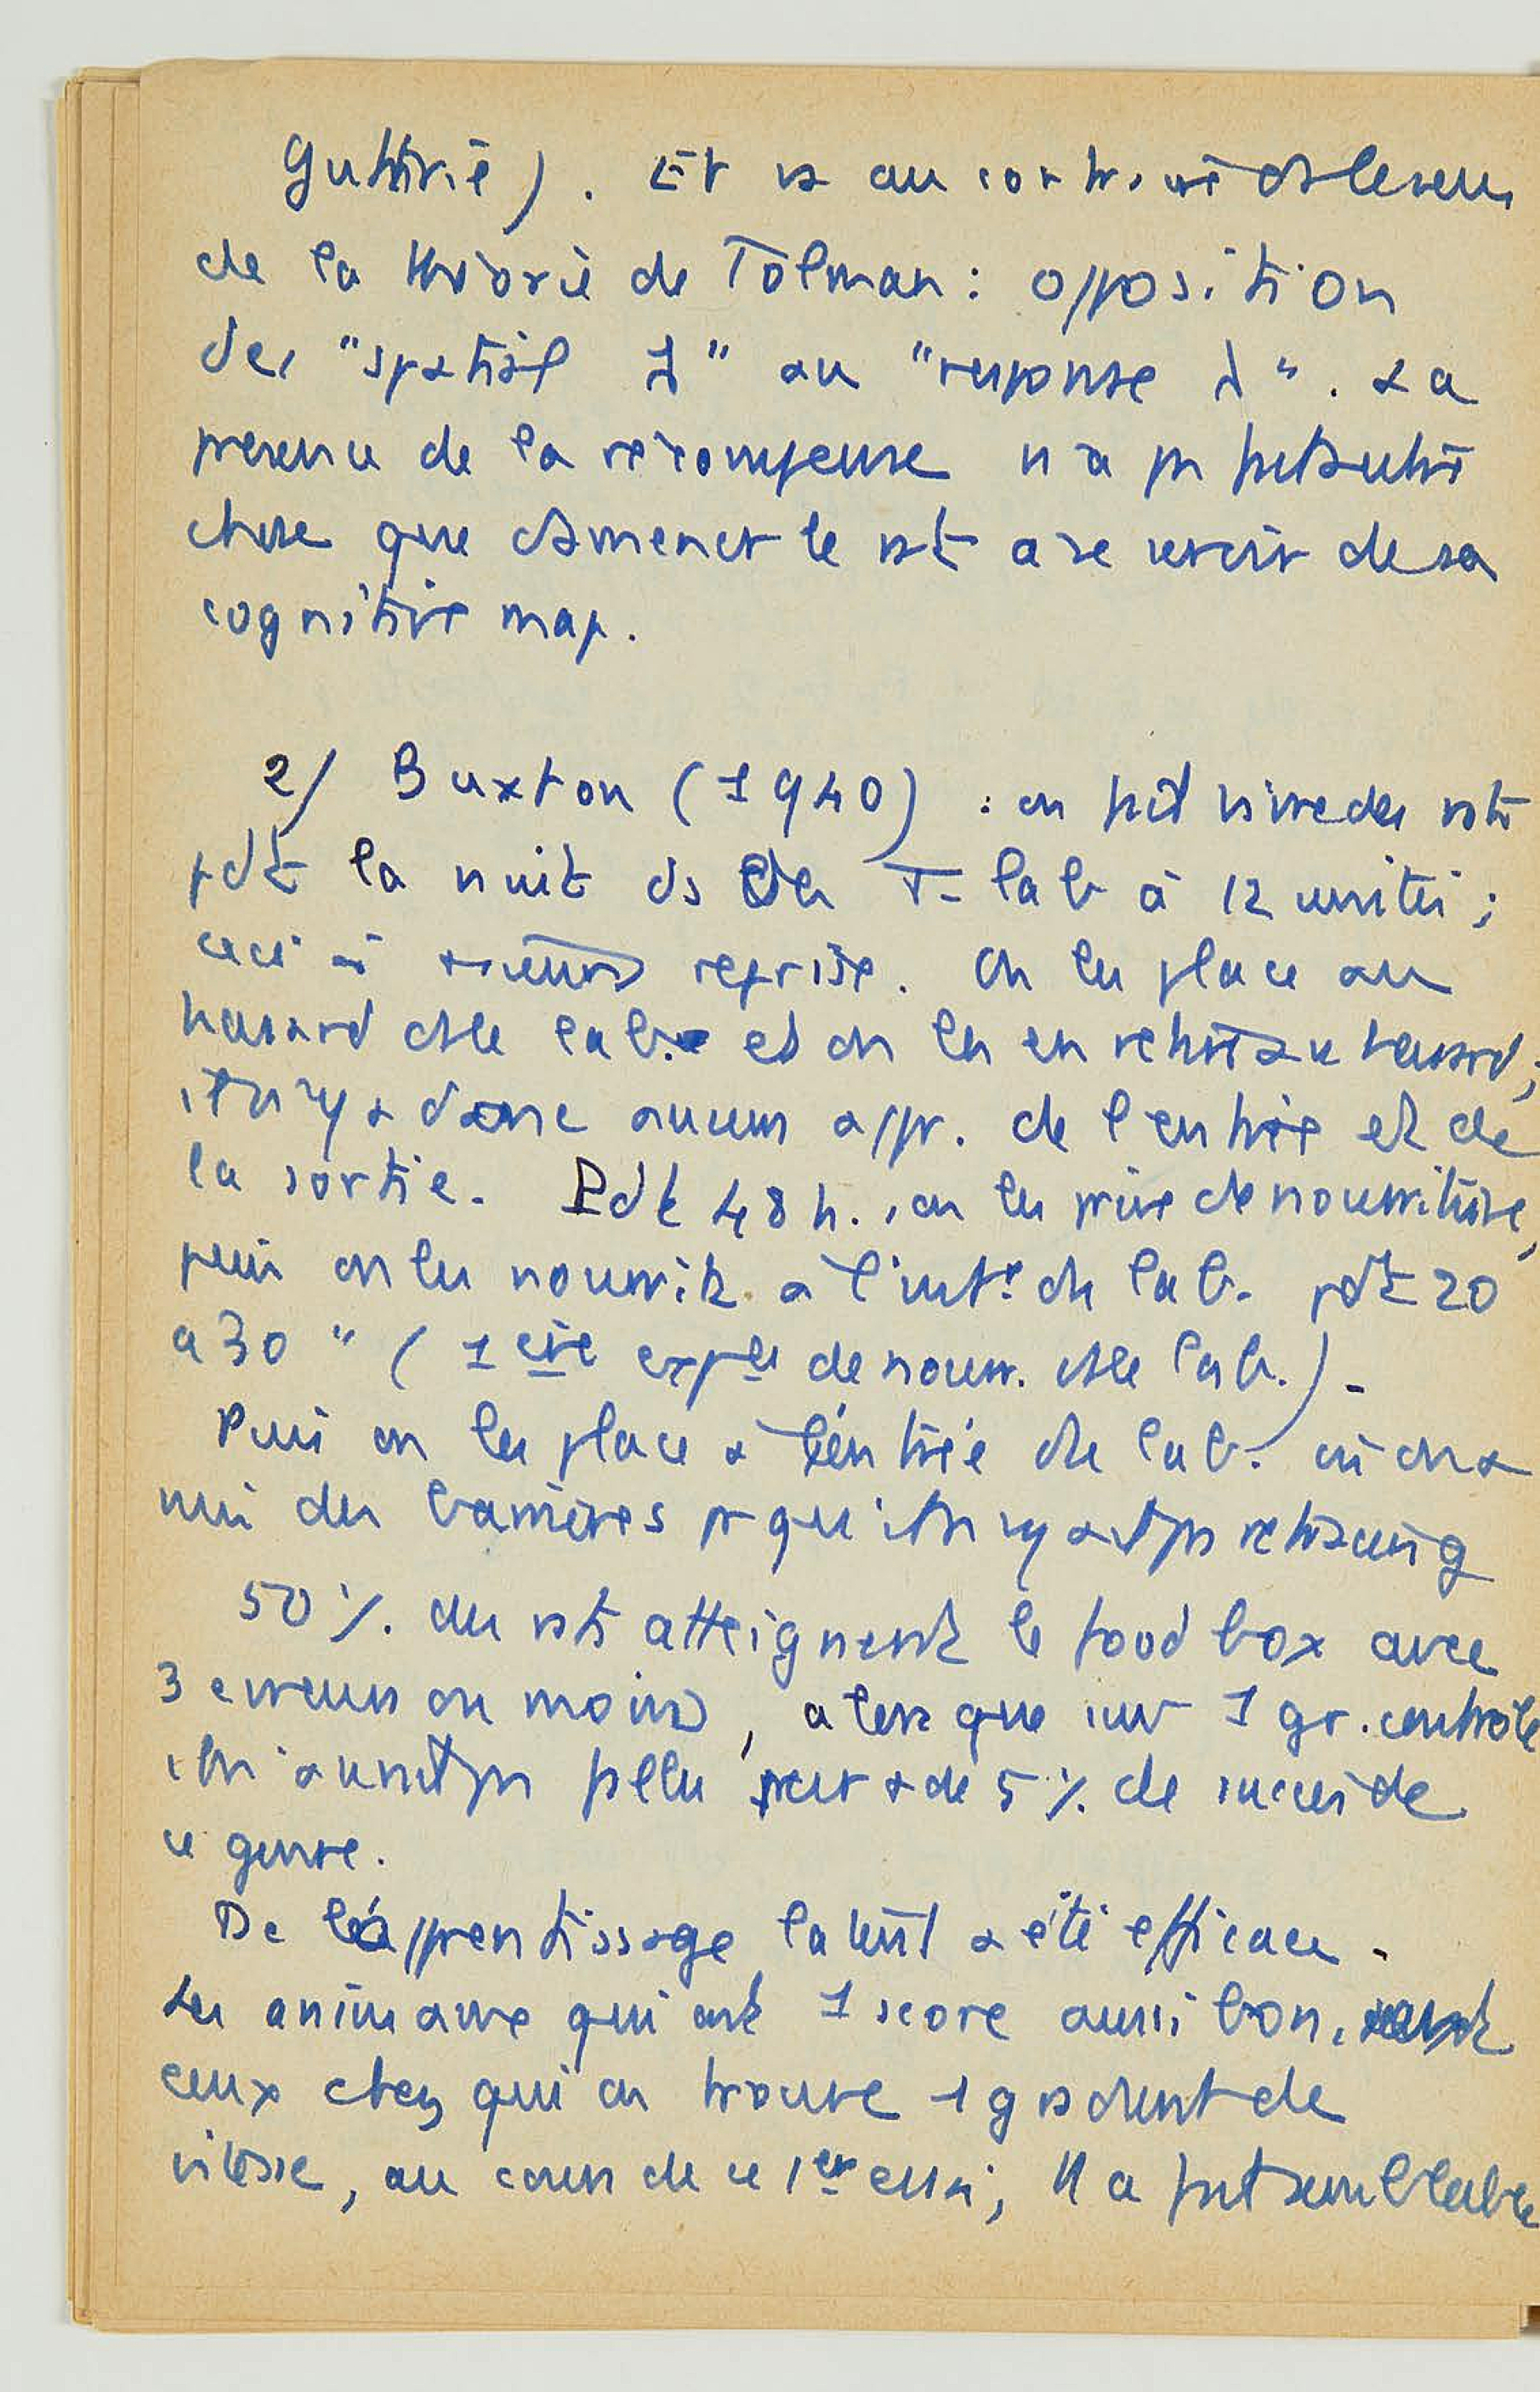 Guthrie). Et va au contraire ds le sens
de la théorie de Tolman : opposition
des "spatial l" au "response l". La
présence de la récompense n'a pas fait autre
chose que d'amener le rat à se servir de sa
cognitive map.
2/ Buxton (1940) : on fait vivre des rats
pdt la nuit ds des T-lab à 12 unités ;
ceci à reprise. On les place au
hasard ds le lab. et on les en retire au hasard ;
il n'y a donc aucun appr. de l'entrée et de
la sortie. Pdt 48 h., on les prive de nourriture,
puis on les nourrit à l'intr de lab. pdt 20
a 30 " ( 1ère expce de nourr. ds le lab.).
Puis on les place à l'entrée de lab. où on a
mis des barrières pr qu'il n'y ait pas retracing
50 %. des rats atteignent le food box avec
3 erreurs ou moins, alors que sur 1 gr. contrôle
de 5 %. de succès de
ce genre.
De l'apprentissage latent a été efficace.
Les animaux qui ont 1 score aussi bon,
ceux chez qui on trouve 1 gradient de
vitesse, au cours de ce 1er essai, Il a fait semblable